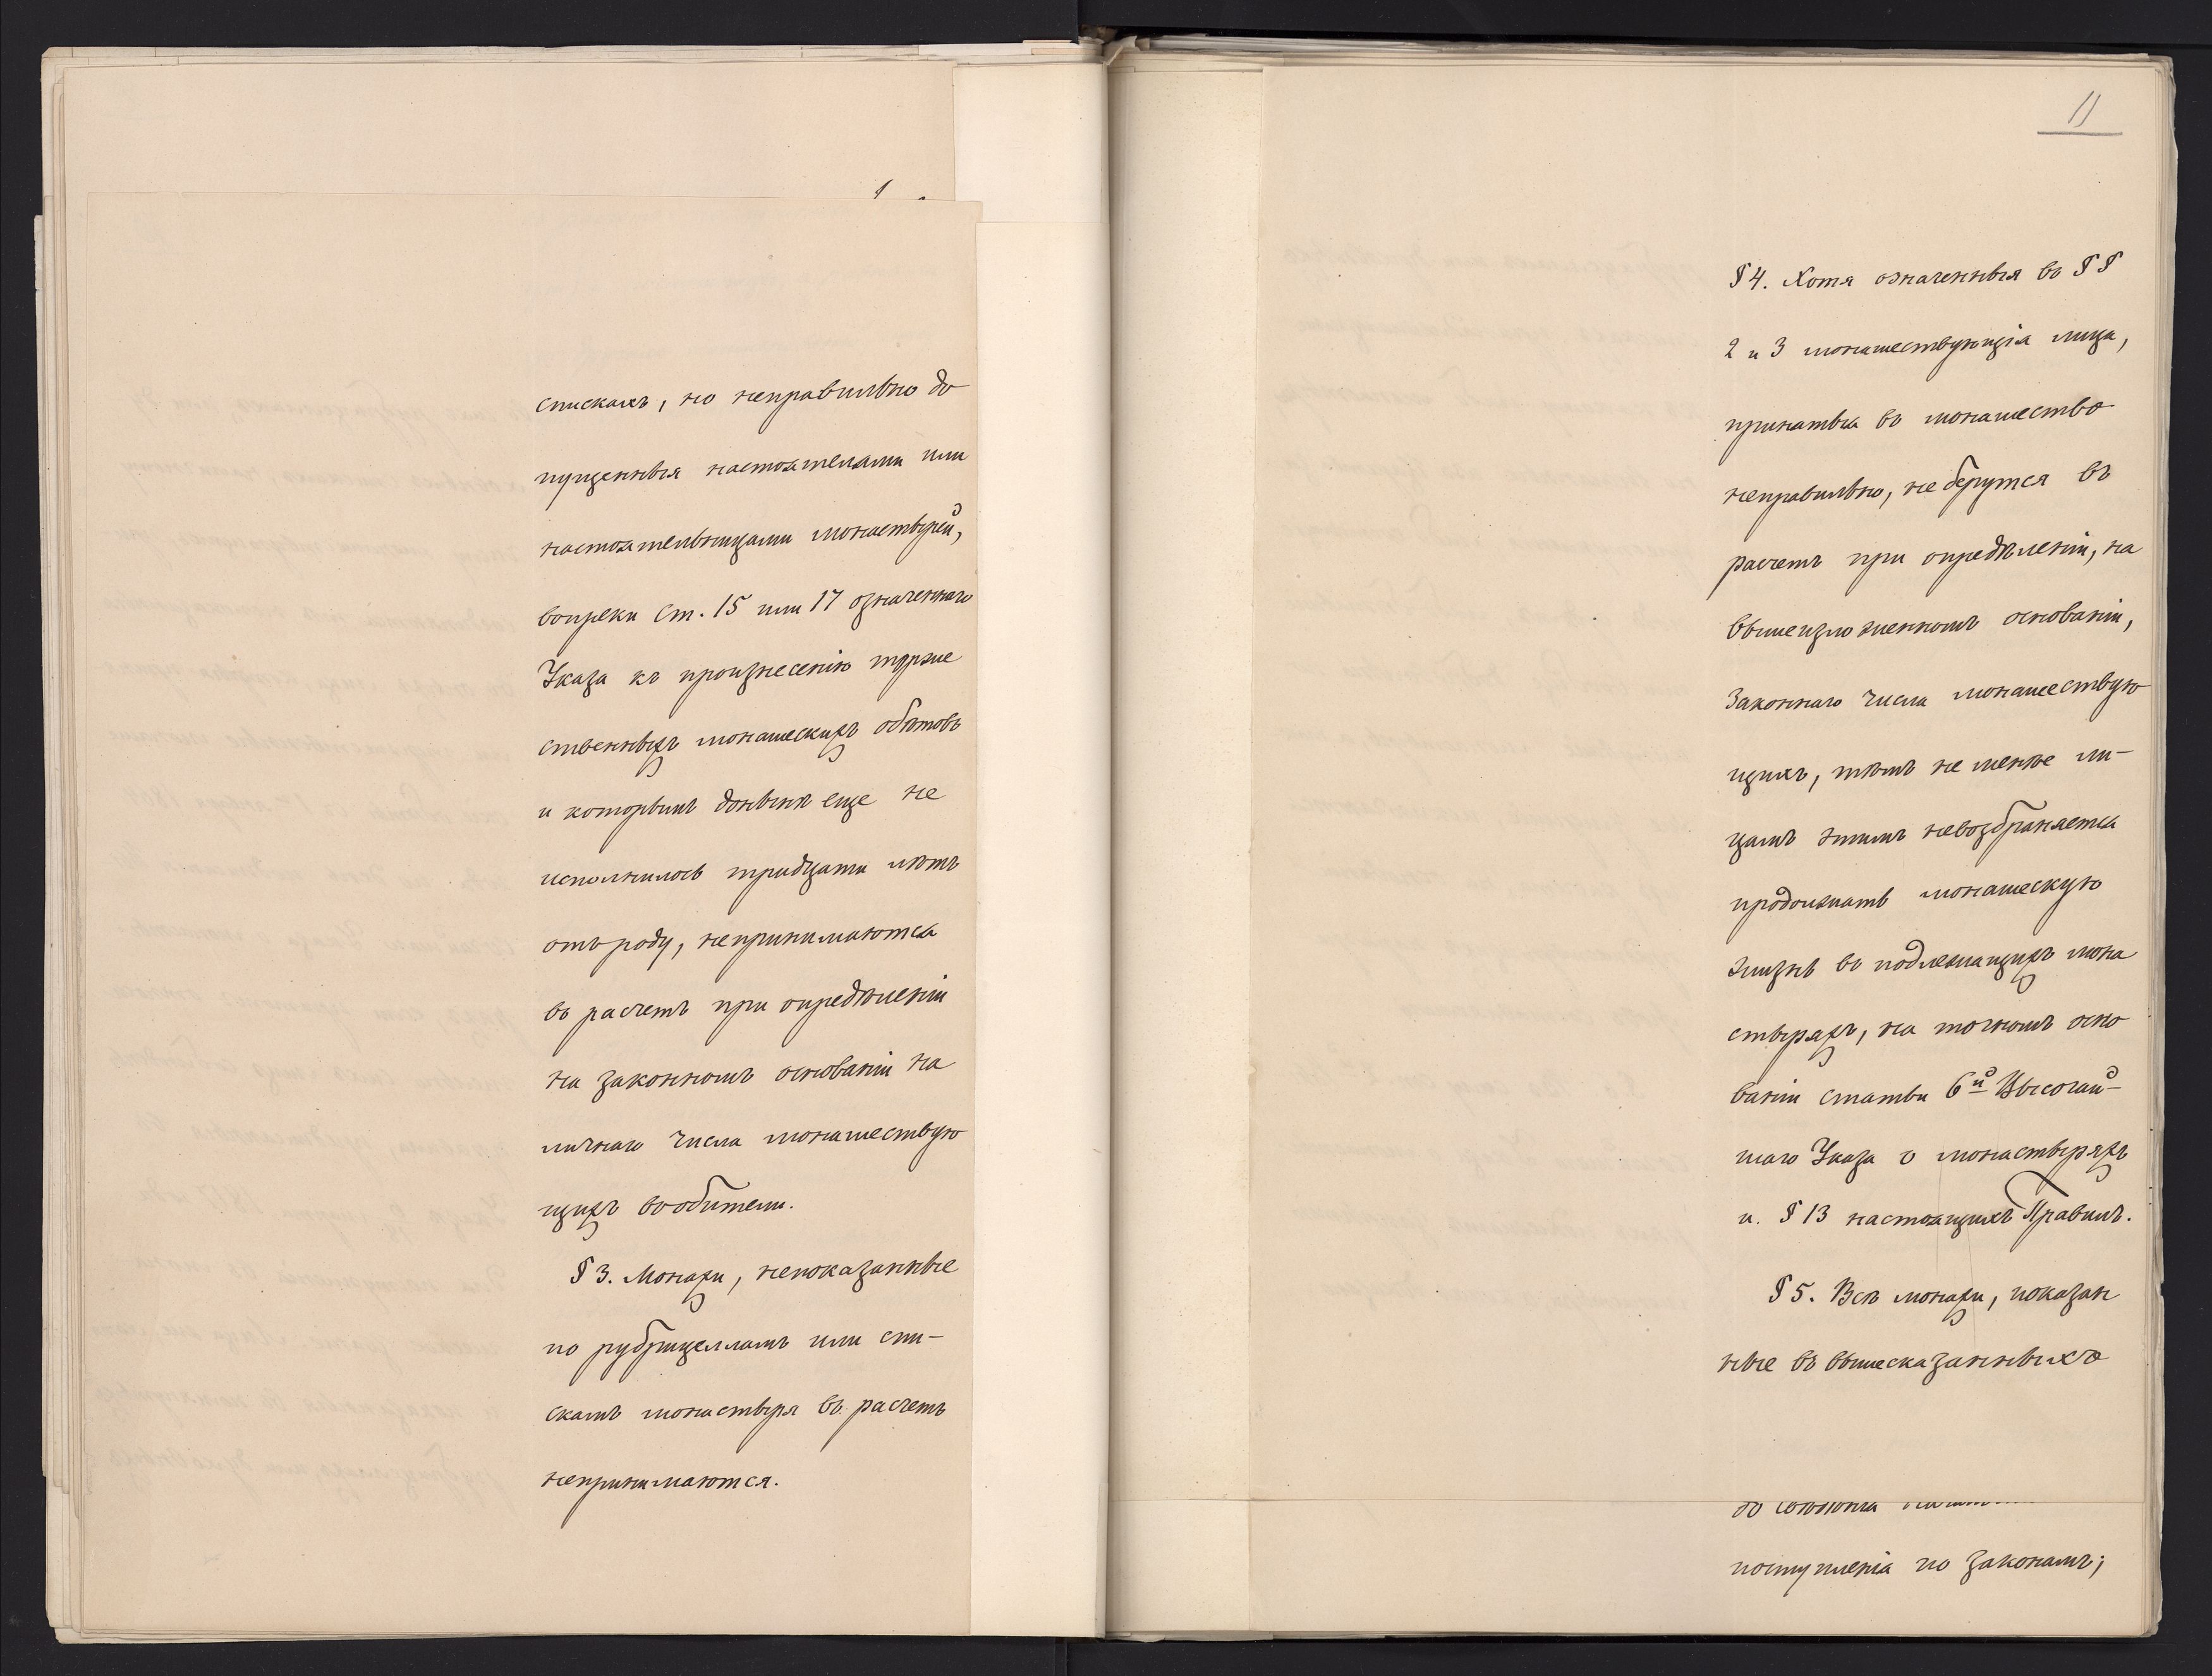 спискахъ, но неправильно до
пущенныя настоятелями или
настоятельницами монастырей,
вопреки ст. 15 или 17 означеннаго
Указа къ произнесенію торже
ственныхъ монашескихъ обѣтовъ
и которымъ донынѣ еще не
исполнилось тридцати лѣтъ
отъ роду, непринимаются
въ расчетъ при опредѣленіи
на законномъ основаніи на
личнаго числа монашествую
щихъ въ обители.
§ 3. Монахи, непоказанные
по рубрицелламъ или спи-
скамъ монастыря въ расчетъ
непринимаются.
11
§ 4. Хотя означенныя въ § §
2 и 3 монашествующія лица,
принятыя въ монашество
неправильно, не берутся въ
расчетъ при опредѣленіи, на
вышеизложенномъ основаніи,
законнаго числа монашествую
щихъ, тѣмъ не менѣе ли-
цамъ этимъ невозбраняется
продолжать монашескую
жизнь въ подлежащихъ мона
стыряхъ, на точномъ осно
ваніи статьи 6й Высочай-
шаго Указа о монастыряхъ
и. § 13 настоящихъ Правилъ.
§ 5. Всѣ монахи, показан
ные въ вышесказанныхъ
поступленія по законамъ;